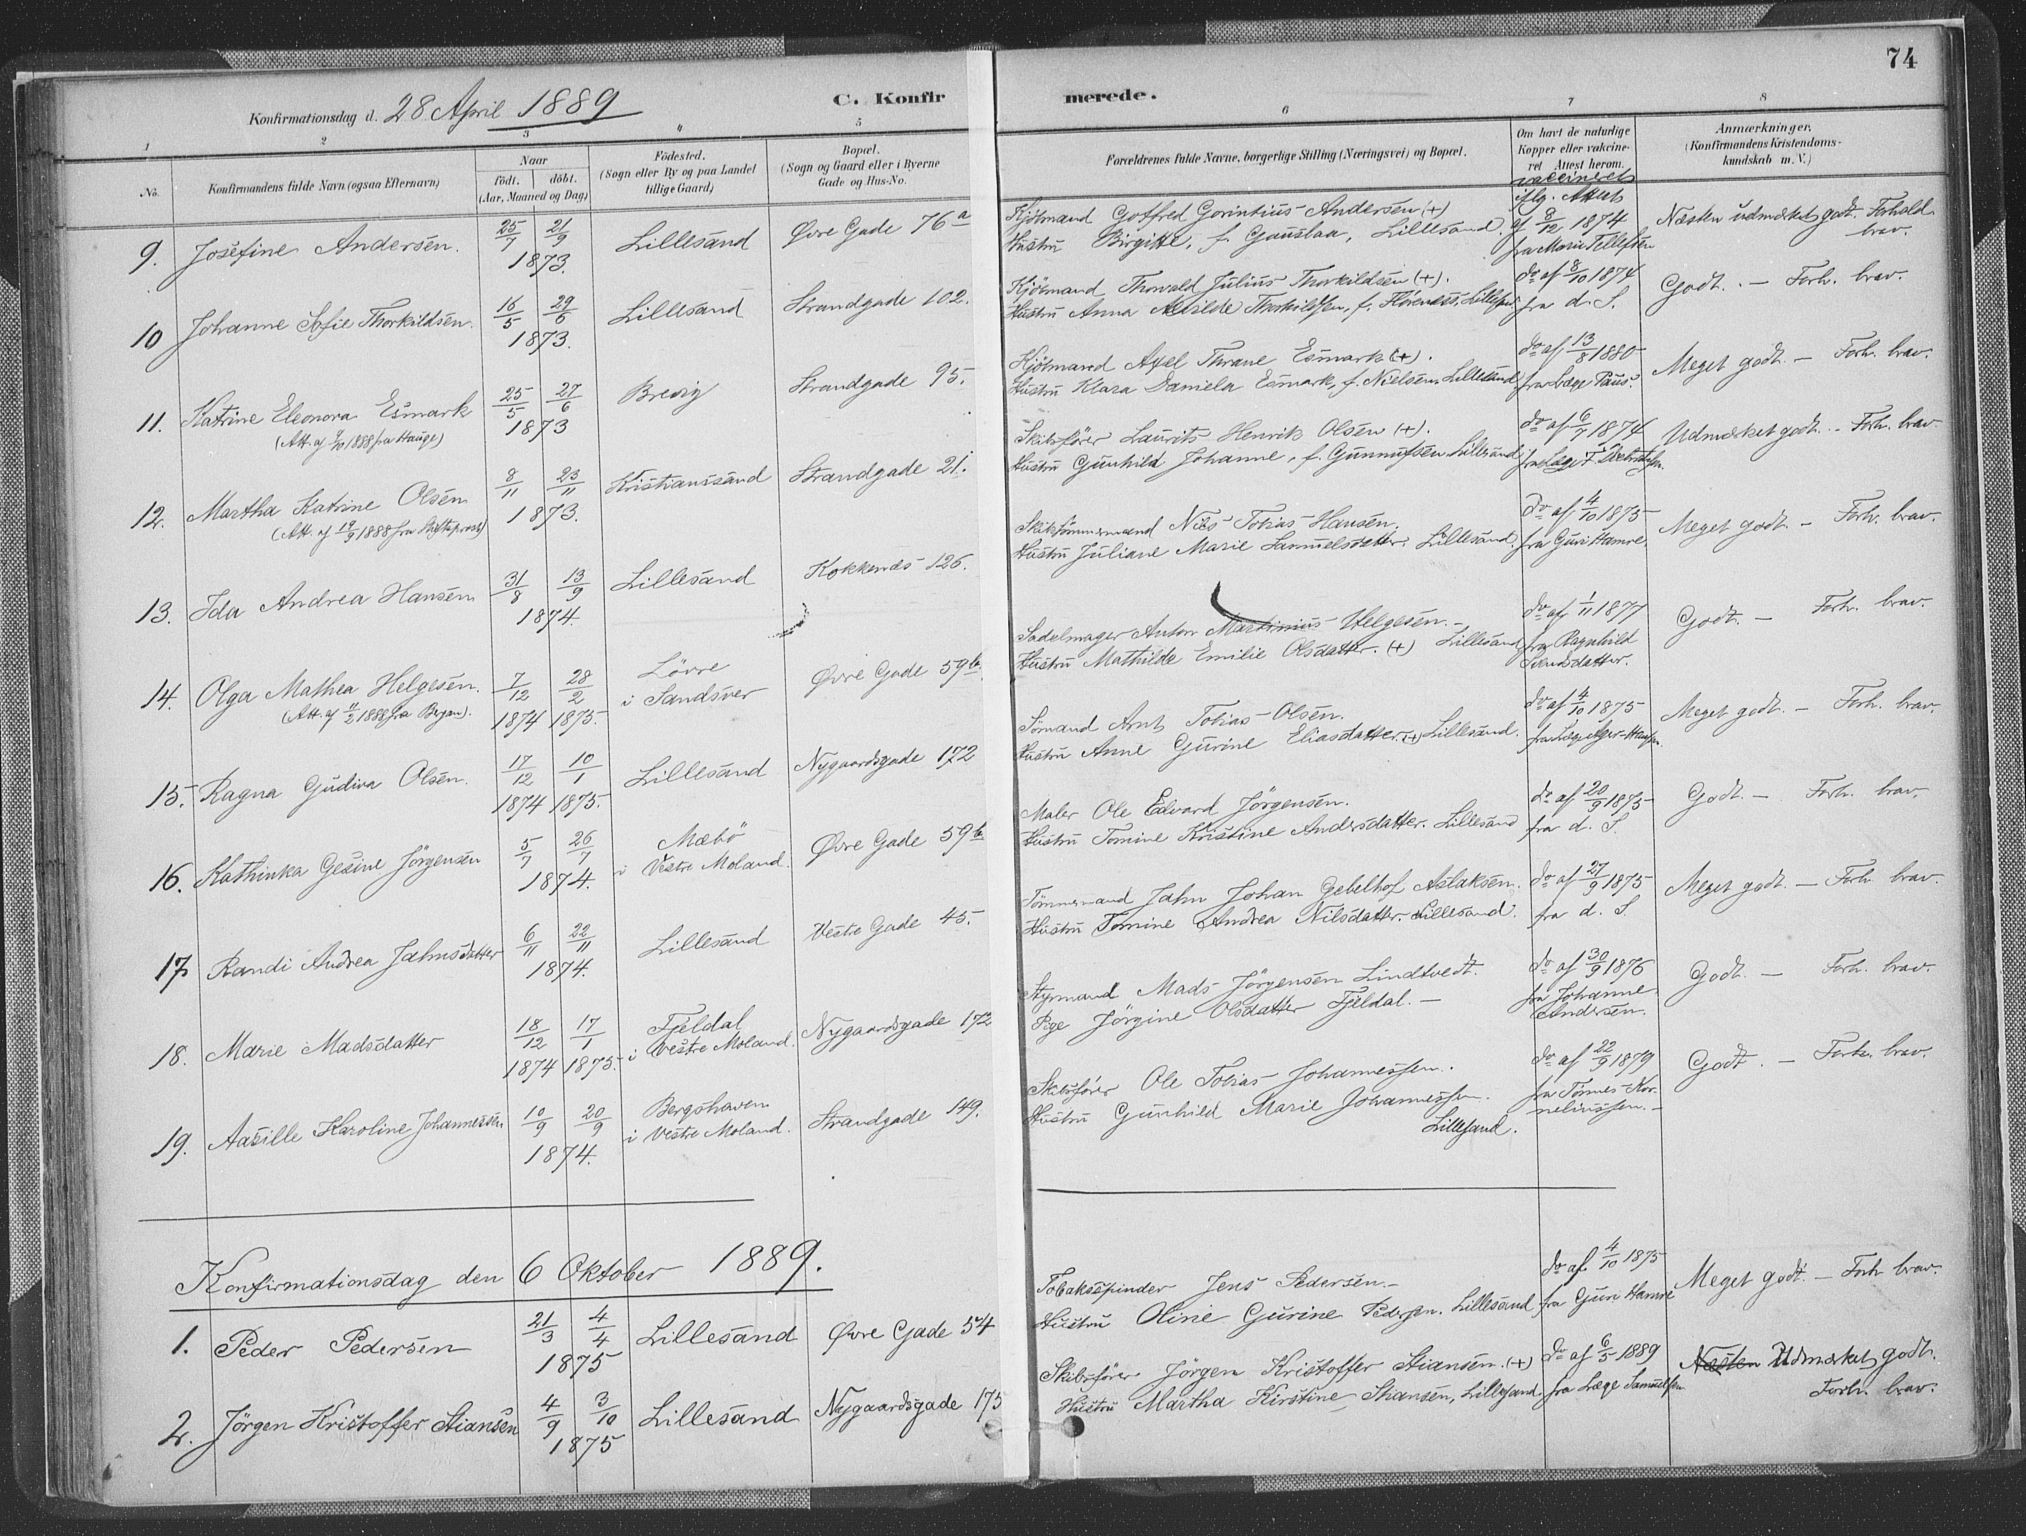 74
Konfirmationsdag d. 28 April 1889
C. Konfirmerede.
1 2 3 4 5 6 7 8
No.
Konfirmandens fulde Navn (ogsaa Efternavn)
Naar
født. døbt.
(Aar, Maaned og Dag)
Fødested.
(Sogn eller By og paa Landet
tillige Gaard)
Bopæl.
(Sogn og Gaard eller i Byerne
Gade og Hus-No.
Forældrenes fulde Navne, borgerlige Stilling (Næringsvei) og Bopæl.
Om havt de naturlige
Kopper eller vakcine-
ret Attest herom.
Anmærkninger.
(Konfirmandens Kristendoms-
kundskab m. V.)
9. Josefine Andersen. 25/7 21/9 1873. Lillesand Øvre Gade 76a
Kjøbmand Gotfred Gorintius Andersen (+)
Hustru Birgitte, f. Gauslaa, Lillesand.
vaccineret
iflg. Attest
af 8/12 1874
fra Marie Tellefsen
Næsten udmærket godt. Forhold
brav.
10 Johanne Sofie Thorkildsen. 16/5 29/6 1873. Lillesand Strandgade 102.
Kjøbmand Thorvald Julius Thorkildsen (+).
Hustru Anna Matilde Thorkildsen, f. Lillesand
do af 8/10 1874
fra d. S.
Godt. - Forh. brav.
11. Katrine Eleonora Esmark 25/5 27/6 1873 Brevig Strandgade 95.
(Att. af 1888 fra Hauge)
Kjøbmand Axel Thrane Esmark (+).
Hustru Klara Daniela Esmark, f. Nielsen, Lillesand
do af 13/8 1880
fra Læge Paus.
Meget godt. - Forh. brav.
12. Martha Katrine Olsen 8/11 23/11 1873. Kristianssand Strandgade 21.
(Att. af 19/9 1888 fra Stiftsprost)
Skibsfører Laurits Henrik Olsen (+).
Hustru Gunhild Johanne, f. Gunnufsen Lillesand
do af 6/7 1874
fra Læge
Udmærket godt. - Forh. brav.
13. Ida Andrea Hansen 31/8 13/9 1874. Lillesand Kokkenæs 126.
Skibstømmermand Nils Tobias Hansen.
Hustru Juliane Marie Samuelsdatter. Lillesand.
do af 4/10 1875
fra Guri Hamre.
Meget godt - Forh. brav.
14. Olga Mathea Helgesen. 7/12 1874 28/2 1875. Løvre
i Sandsver Øvre Gade 59b.
(Att. af 11/2 1888 fra Bergan).
Sadelmager Anton Martinius Helgesen.
Hustru Mathilde Emilie Olsdatter. (+) Lillesand
do af 1/11 1877
fra Ragnhild
Godt. - Forh. brav.
15. Ragna Gudiva Olsen. 17/12 1874 10/1 1875. Lillesand Nygaardsgade 172
Sømand Arnt Tobias Olsen.
Hustru Anne Gurine Eliasdatter (+) Lillesand.
do af 4/10 1875
fra Læge
Meget godt. - Forh. brav.
16. Kathinka Gesine Jørgensen 5/7 26/7 1874. Mæbø
i Vestre Moland. Øvre Gade 59b
Maler Ole Edvard Jørgensen.
Hustru Tomine Kristine Andersdatter. Lillesand
do af 20/9 1875
fra d. S.
Godt. - Forh. brav.
17 Randi Andrea Jahnsdatter 6/11 22/11 1874. Lillesand Vestre Gade 45.
Tømmermand Jahn Johan Gebelhof Aslaksen.
Hustru Tomine Andrea Nilsdatter. Lillesand.
do af 27/9 1875
fra d. S.
Meget godt. - Forh. brav.
18. Marie Madsdatter 18/12 1874 17/1 1875. Tjeldal
i Vestre Moland. Nygaardsgade 172
Styrmand Mads Jørgensen Lindtvedt.
Pige Jørgine Olsdatter Tjeldal. -
do af 30/9 1876
fra Johanne
Andersen.
Godt. - Forh. brav.
19. Aasille Karoline Johannessen 10/9 20/9 1874. Bergshaven
i Vestre Moland. Strandgade 149.
Skibsfører Ole Tobias Johannessen.
Hustru Gunhild Marie Johannessen.
Lillesand.
do af 22/9 1879
fra Tomes Kor-
neliussen. -
Godt. - Forh. brav.
Konfirmationsdag den 6 Oktober 1889.
1. Peder Pedersen 21/3 4/4 1875 Lillesand Øvre Gade 54
Tobaksspinder Jens Pedersen. -
Hustru Oline Gurine Pedersen. Lillesand
do af 4/10 1875
fra Guri Hamre
Meget godt. - Forh brav.
2. Jørgen Kristoffer Stiansen 4/9 3/10 1875 Lillesand Nygaardsgade 175
Skibsfører Jørgen Kristoffer Stiansen. (+)
Hustru Martha Kirstine Stiansen, Lillesand
do af 6/5 1889
fra Læge Samuelsen
Næsten Udmærket godt.
Forh. brav.